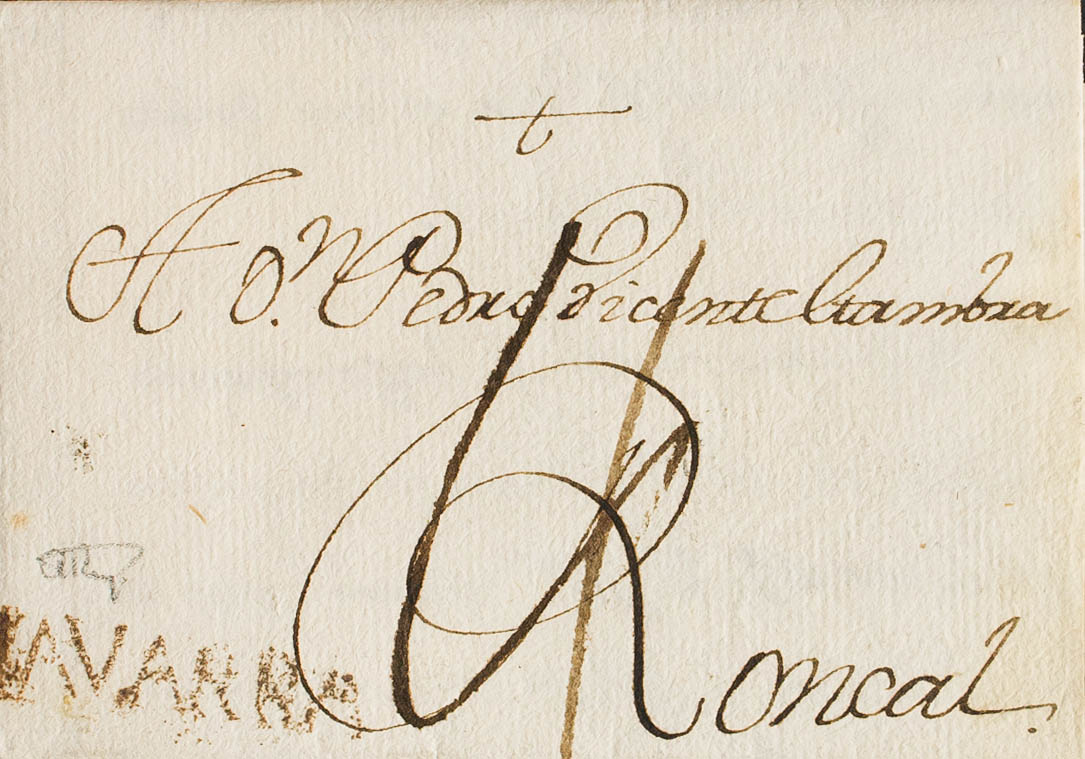 A Dn. Pedro Vicente Gambra
Roncal.
NAVARRA